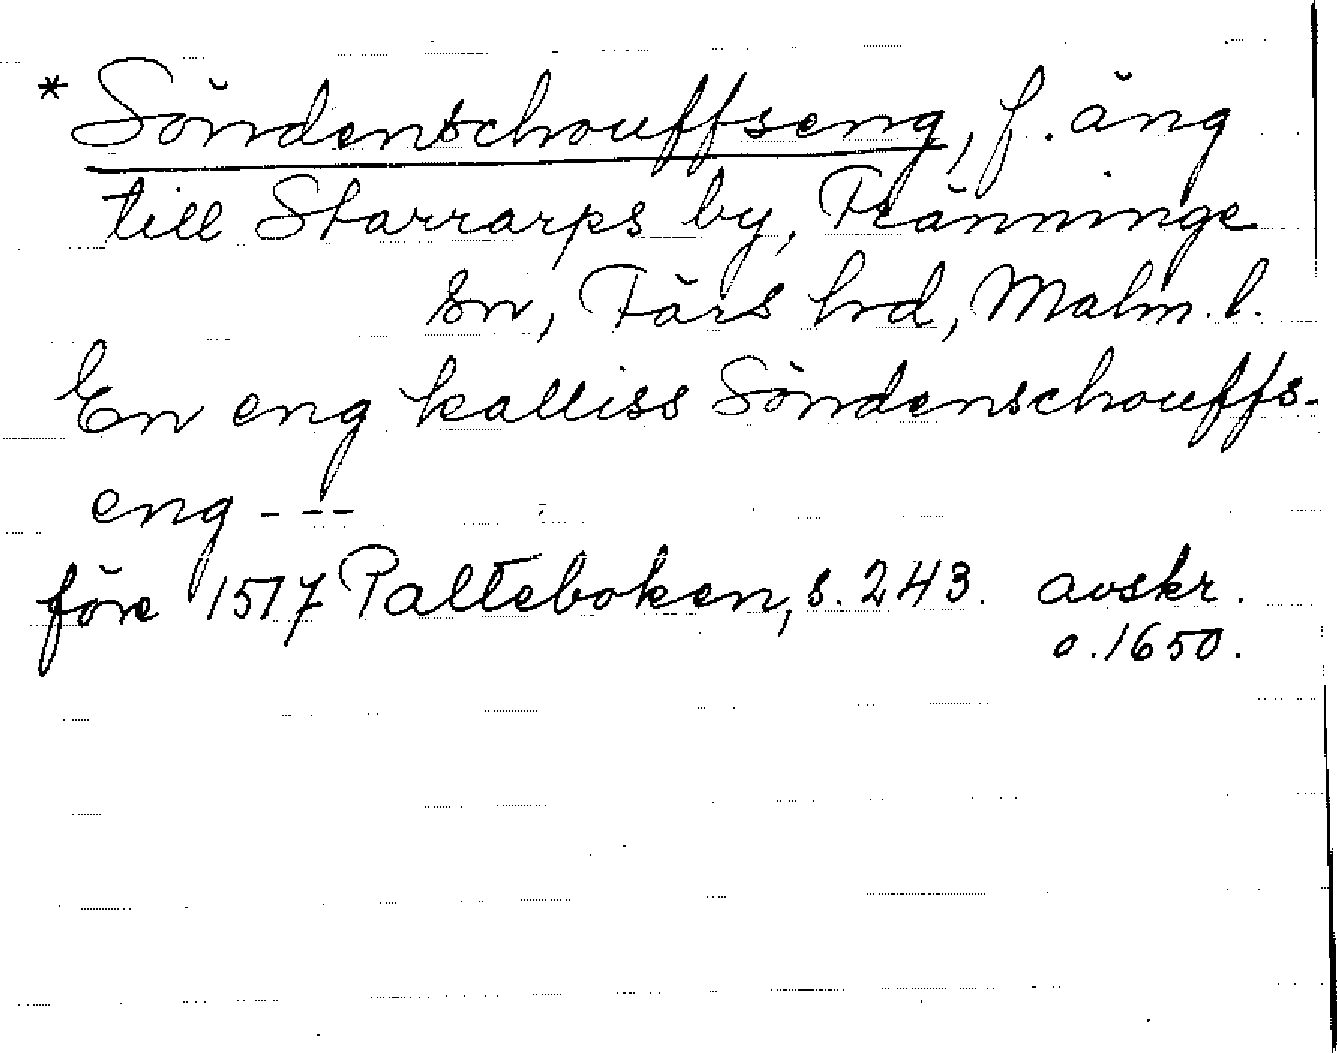 * Söndenschouffseng, f. äng
till Starrarps by, Tränninge
sn, Färs hrd, Malm. l.
En eng kalliss Söndenschouffs-
eng - - -
före 1517 Palteboken, s. 243. avskr.
o. 1650.